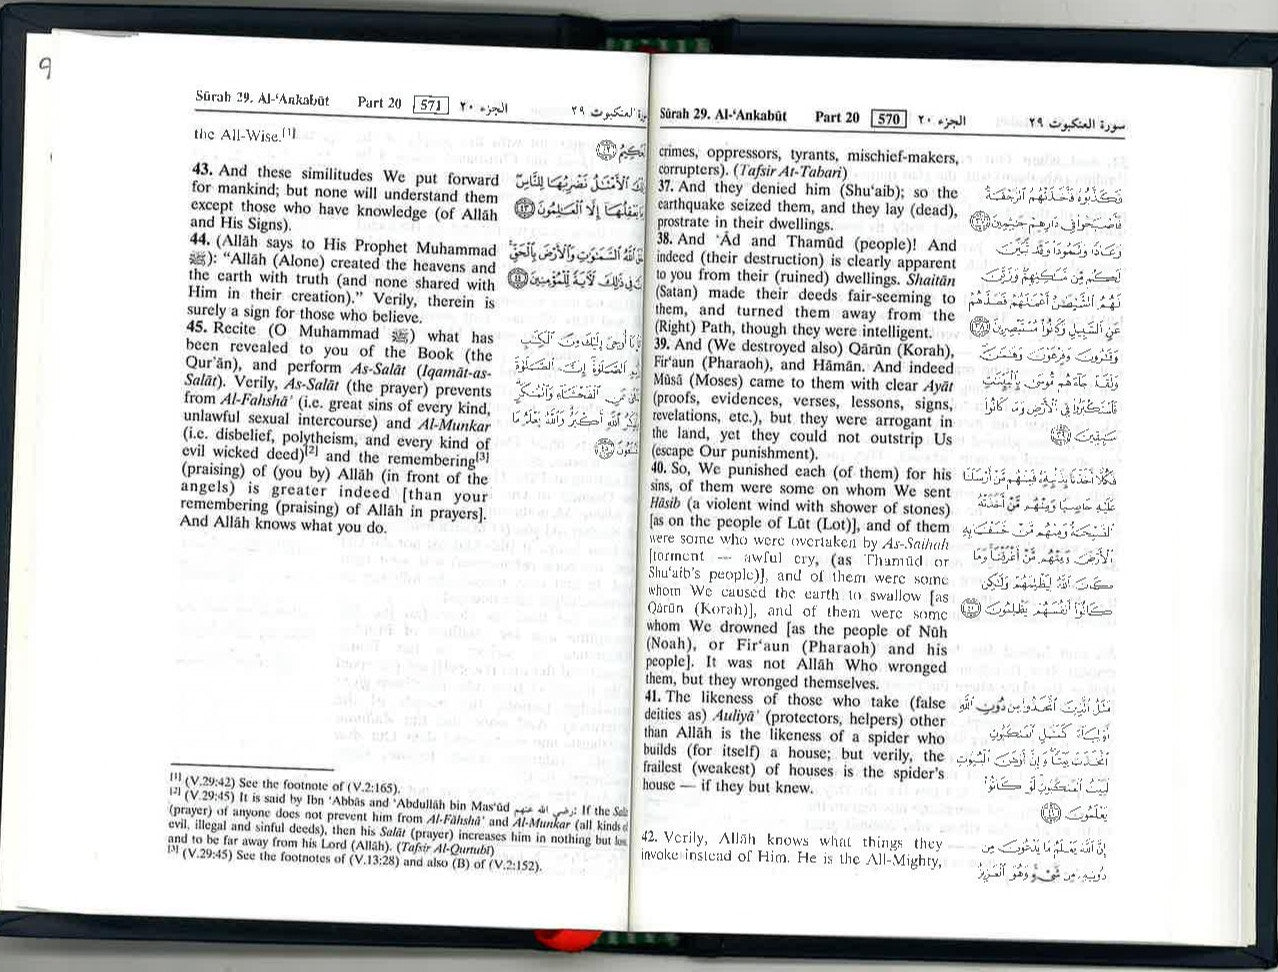 Sûrah 29. Al-‘Ankabût Part 20 570 الجزء ٢٠ سورة العنكبوت ٢٩
crimes, oppressors, tyrants, mischief-makers,
corrupters). (Tafsir At-Tabari)
37. And they denied him (Shu‘aib); so the
earthquake seized them, and they lay (dead),
prostrate in their dwellings.
38. And ‘Âd and Thamûd (people)! And
indeed (their destruction) is clearly apparent
to you from their (ruined) dwellings. Shaitân
(Satan) made their deeds fair-seeming to
them, and turned them away from the
(Right) Path, though they were intelligent.
39. And (We destroyed also) Qârûn (Korah),
Fir‘aun (Pharaoh), and Hâmân. And indeed
Mûsâ (Moses) came to them with clear Ayât
(proofs, evidences, verses, lessons, signs,
revelations, etc.), but they were arrogant in
the land, yet they could not outstrip Us
(escape Our punishment).
40. So, We punished each (of them) for his
sins, of them were some on whom We sent
Hâsib (a violent wind with shower of stones)
[as on the people of Lût (Lot)], and of them
were some who were overtaken by As-Saihah
[torment — awful cry, (as Thamûd or
Shu‘aib’s people)], and of them were some
whom We caused the earth to swallow [as
Qârûn (Korah)], and of them were some
whom We drowned [as the people of Nûh
(Noah), or Fir‘aun (Pharaoh) and his
people]. It was not Allâh Who wronged
them, but they wronged themselves.
41. The likeness of those who take (false
deities as) Auliyâ’ (protectors, helpers) other
than Allâh is the likeness of a spider who
builds (for itself) a house; but verily, the
frailest (weakest) of houses is the spider’s
house — if they but knew.
42. Verily, Allâh knows what things they
invoke instead of Him. He is the All-Mighty,
فَكَذَّبُوهُ فَأَخَذَتْهُمُ ٱلرَّجْفَةُ
فَأَصْبَحُوا۟ فِى دَارِهِمْ جَٰثِمِينَ ٣٧
وَعَادًا وَثَمُودَا۟ وَقَد تَّبَيَّنَ
لَكُم مِّن مَّسَٰكِنِهِمْ وَزَيَّنَ
لَهُمُ ٱلشَّيْطَٰنُ أَعْمَٰلَهُمْ فَصَدَّهُمْ
عَنِ ٱلسَّبِيلِ وَكَانُوا۟ مُسْتَبْصِرِينَ ٣٨
وَقَٰرُونَ وَفِرْعَوْنَ وَهَٰمَٰنَ
وَلَقَدْ جَآءَهُم مُّوسَىٰ بِٱلْبَيِّنَٰتِ
فَٱسْتَكْبَرُوا۟ فِى ٱلْأَرْضِ وَمَا كَانُوا۟
سَٰبِقِينَ ٣٩
فَكُلًّا أَخَذْنَا بِذَنۢبِهِۦ فَمِنْهُم مَّنْ أَرْسَلْنَا
عَلَيْهِ حَاصِبًا وَمِنْهُم مَّنْ أَخَذَتْهُ
ٱلصَّيْحَةُ وَمِنْهُم مَّنْ خَسَفْنَا بِهِ
ٱلْأَرْضَ وَمِنْهُم مَّنْ أَغْرَقْنَا وَمَا
كَانَ ٱللَّهُ لِيَظْلِمَهُمْ وَلَٰكِن
كَانُوٓا۟ أَنفُسَهُمْ يَظْلِمُونَ ٤٠
مَثَلُ ٱلَّذِينَ ٱتَّخَذُوا۟ مِن دُونِ ٱللَّهِ
أَوْلِيَآءَ كَمَثَلِ ٱلْعَنكَبُوتِ
ٱتَّخَذَتْ بَيْتًا وَإِنَّ أَوْهَنَ ٱلْبُيُوتِ
لَبَيْتُ ٱلْعَنكَبُوتِ لَوْ كَانُوا۟
يَعْلَمُونَ ٤١
إِنَّ ٱللَّهَ يَعْلَمُ مَا يَدْعُونَ مِن
دُونِهِۦ مِن شَىْءٍ وَهُوَ ٱلْعَزِيزُ
9
Sûrah 29. Al-‘Ankabût Part 20 571 الجزء ٢٠ العنكبوت ٢٩
the All-Wise.[1]
43. And these similitudes We put forward
for mankind; but none will understand them
except those who have knowledge (of Allâh
and His Signs).
44. (Allâh says to His Prophet Muhammad
ﷺ): “Allâh (Alone) created the heavens and
the earth with truth (and none shared with
Him in their creation).” Verily, therein is
surely a sign for those who believe.
45. Recite (O Muhammad ﷺ) what has
been revealed to you of the Book (the
Qur’ân), and perform As-Salât (Iqamât-as-
Salât). Verily, As-Salât (the prayer) prevents
from Al-Fahshâ’ (i.e. great sins of every kind,
unlawful sexual intercourse) and Al-Munkar
(i.e. disbelief, polytheism, and every kind of
evil wicked deed)[2] and the remembering[3]
(praising) of (you by) Allâh (in front of the
angels) is greater indeed [than your
remembering (praising) of Allâh in prayers].
And Allâh knows what you do.
ٱلْأَمْثَٰلُ نَضْرِبُهَا لِلنَّاسِ
يَعْقِلُهَآ إِلَّا ٱلْعَٰلِمُونَ ٤٣
ٱللَّهُ ٱلسَّمَٰوَٰتِ وَٱلْأَرْضَ بِٱلْحَقِّ
فِى ذَٰلِكَ لَءَايَةً لِّلْمُؤْمِنِينَ ٤٤
أُوحِىَ إِلَيْكَ مِنَ ٱلْكِتَٰبِ
ٱلصَّلَوٰةَ إِنَّ ٱلصَّلَوٰةَ
عَنِ ٱلْفَحْشَآءِ وَٱلْمُنكَرِ
ٱللَّهِ أَكْبَرُ وَٱللَّهُ يَعْلَمُ مَا
[1] (V.29:42) See the footnote of (V.2:165).
[2] (V.29:45) It is said by Ibn ‘Abbâs and ‘Abdullâh bin Mas‘ûd رضي الله عنهم: If the
(prayer) of anyone does not prevent him from Al-Fâhshâ’ and Al-Munkar (all kinds
evil, illegal and sinful deeds), then his Salât (prayer) increases him in nothing but
and to be far away from his Lord (Allâh). (Tafsir Al-Qurtubi)
[3] (V.29:45) See the footnotes of (V.13:28) and also (B) of (V.2:152).